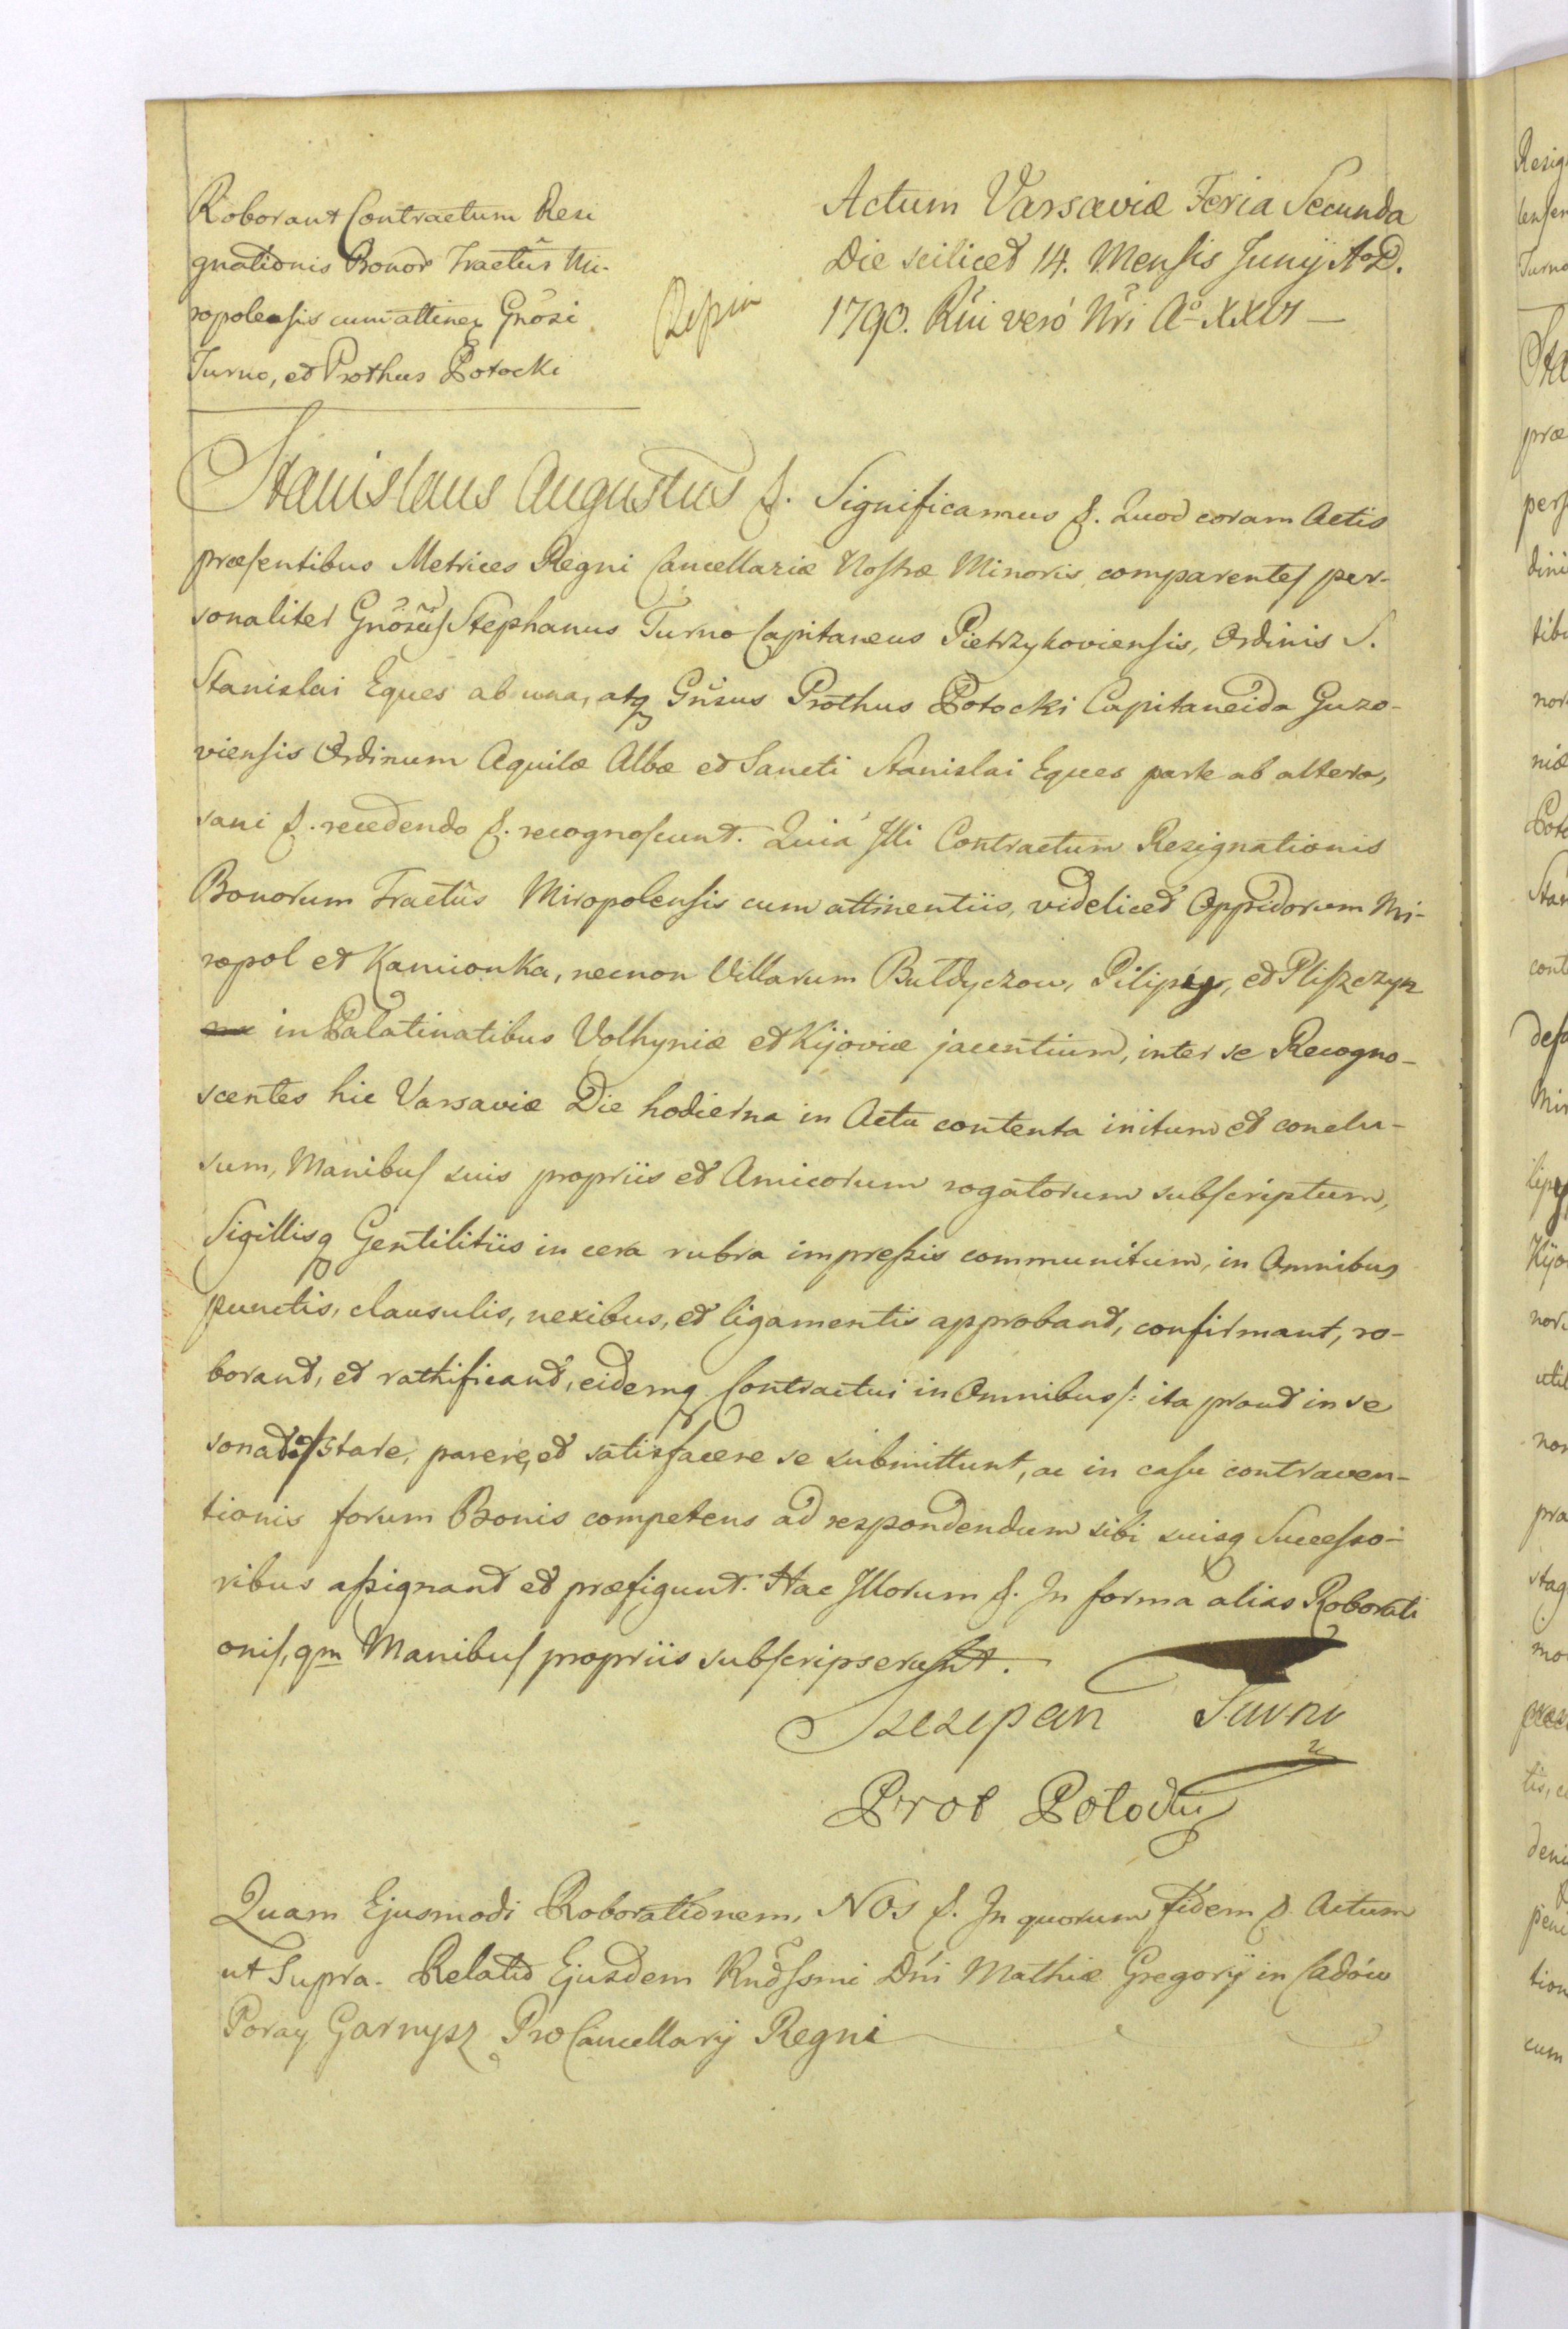 Roborant Contractum Resi
gnationis Bonor Tractûs Mi-
ropolensis cum attinen Gnosi
Turno, et Prothus Potocki
Actum Varsaviæ Feria Secunda
Die scilicet 14. Mensis Junij AoD.
1790. Rũi veró Nri Ao XXVI
Stanislaus Augustus &. Significamus &. Quod coram Actis
præsentibus Metrices Regni Cancellariæ Nostræ Minoris comparentes per-
sonaliter Gnosus Stephanus Turno Capitaneus Pietrzykoviensis, Ordinis S.
Stanislai Eques ab una, atq Gnsus Prothus Potocki Capitaneida Guzo-
viensis Ordinum Aquilæ Albæ et Sancti Stanislai Eques parte ab altera,
sani &. recedendo &. recognoscunt. Quiá Illi Contractum Resignationis
Bonorum Tractûs Miropolensis cum attinentiis, videlicet Oppidorum Mi-
ropol et Kamionka, necnon Villarum Bułdyczow, Pilipy, et Pliszczyn
in Palatinatibus Volhyniæ et Kijoviæ jacentium, inter se Recogno-
scentes hic Varsaviæ Die hodierna in Actu contenta initum et conclu-
sum, Manibus suis propriis et Amicorum rogatorum subscriptum,
Sigillisq Gentilitiis in cera rubra impressis communitum, in Omnibus
punctis, clausulis, nexibus, et ligamentis approbant, confirmant, ro-
borant, et rathificant, eidemq Contractui in Omnibus /: ita prout in se
sonat :/ stare, parere, et satisfacere se submittunt, ac in casu contraven-
tionis forum Bonis competens ad respondendum sibi suisq Successo-
ribus assignant et præfigunt. Hac Illorum &. In forma alias Roborati
onis, qm Manibus propriis subscripserunt.
Szczepan Turno
Prot Potocki
Quam Ejusmodi Roborationem, NOS &. In quorum fidem &. Actum
ut Supra. Relatio Ejusdem Rndssmi Dńi Mathiæ Gregorij in Ładów
Poray Garnysz ProCancellarij Regni